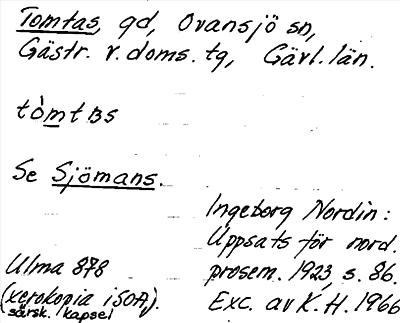 Tomtas, gd, Ovansjö sn,
Gästr. v. doms. tg, Gävl. län.
tòmtas
Se Sjömans.
Ingeborg Nordin:
Uppsats för nord.
prosem. 1923, s. 86.
Exc. av K.H. 1966
Ulma 878
(xerokopia i SOA).
särsk. kapsel